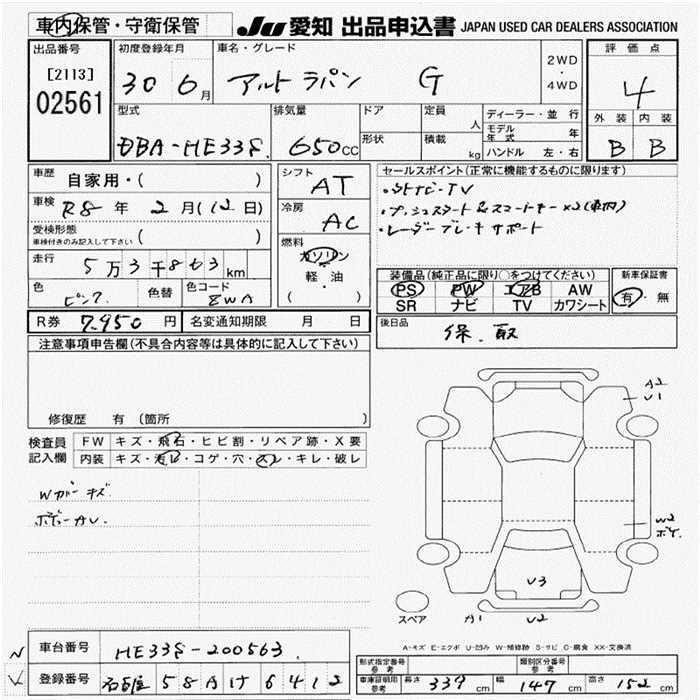 車内保管・守衛保管 JU 愛知 出品申込書 JAPAN USED CAR DEALERS ASSOCIATION
出品番号 初度登録年月 車名・グレード 2WD・4WD 評価点
[2113] 02561 30 6月 アルトラパン G 4
型式 排気量 ドア 定員 人 ディーラー・並行 外装 内装
DBA-HE33S 650CC 形状 積載 kg モデル年式 年 B B
ハンドル 左・右
車歴 自家用・( ) シフト AT セールスポイント(正常に機能するものに限ります)
車検 R8年 2月(12日) 冷房 AC ・ナビ・TV
・プッシュスタート&スマートキー×2(車内)
受検形態 ( ) ・レーダーブレーキサポート
車検付きのみ記入して下さい
走行 5万3千863km 燃料 ガソリン 軽・油 ( )
装備品(純正品に限り○をつけてください) 新車保証書
色 ピンク 色替 色コード ZWA PS PW エアB AW 有・無
SR ナビ TV カワシート
R券 7.950円 名変通知期限 月 日 後日品 保.取
注意事項申告欄(不具合内容等は具体的に記入して下さい)
修復歴 有(箇所 )
A2
U1
検査員記入欄 FW キズ・飛石・ヒビ割・リペア跡・X要
内装 キズ・汚レ・コゲ・穴・スレ・キレ・破レ
Wガラーキズ
ボデーAU
W2
ボデ
U3
スペア A1 U2
A-キズ E-エクボ U-凹ミ W-補修跡 S-サビ C-腐食 XX-交換済
車台番号 HE33S-200563
型式指定番号 参考 類別区分番号 参考
登録番号 名古屋 58A け 6412
車庫証明用 参考 長さ 339cm 幅 147cm 高さ 152cm